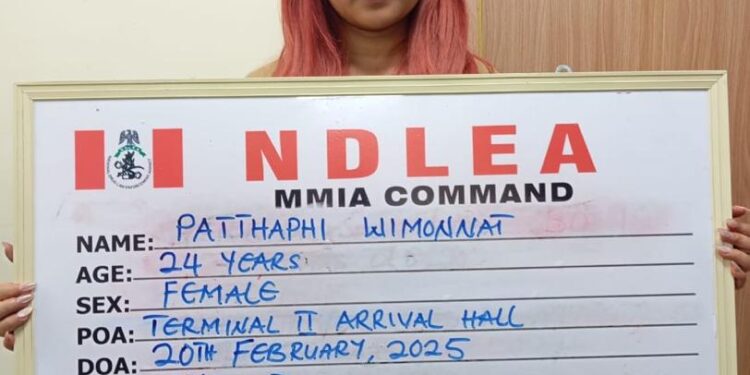 NDLEA
MMIA COMMAND
NAME: PATTHAPHI WIMONNAT
AGE: 24 YEARS
SEX: FEMALE
POA: TERMINAL II ARRIVAL HALL
DOA: 20TH FEBRUARY, 2025